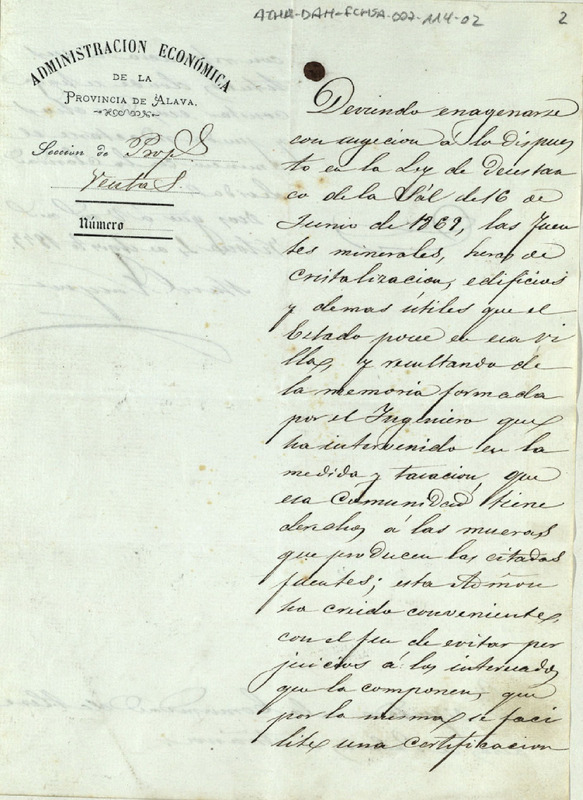 ATHA-DAH-FCMSA-007-114-02
2
ADMINISTRACION ECONÓMICA
DE LA
PROVINCIA DE ALAVA.
Seccion de Prop.s
Ventas.
Número
Deviendo enagenarse
con sugecion a lo dispues
to en la Ley de desestan
co de la Sal de 16 de
Junio de 1869, las fuen
tes minerales, heras de
cristalizacion, edificios
y demas útiles que el
Estado posee en esa Vi
lla, y resultando de
la memoria formada
por el Ingeniero que
ha intervenido en la
medida y tasacion, que
esa Comunidad tiene
derecho á las mueras
que producen las citadas
fuentes; esta Admon
ha creido conveniente,
con el fin de evitar per
juicios á los interesados
que la componen, que
por la misma se faci
lite una certificacion